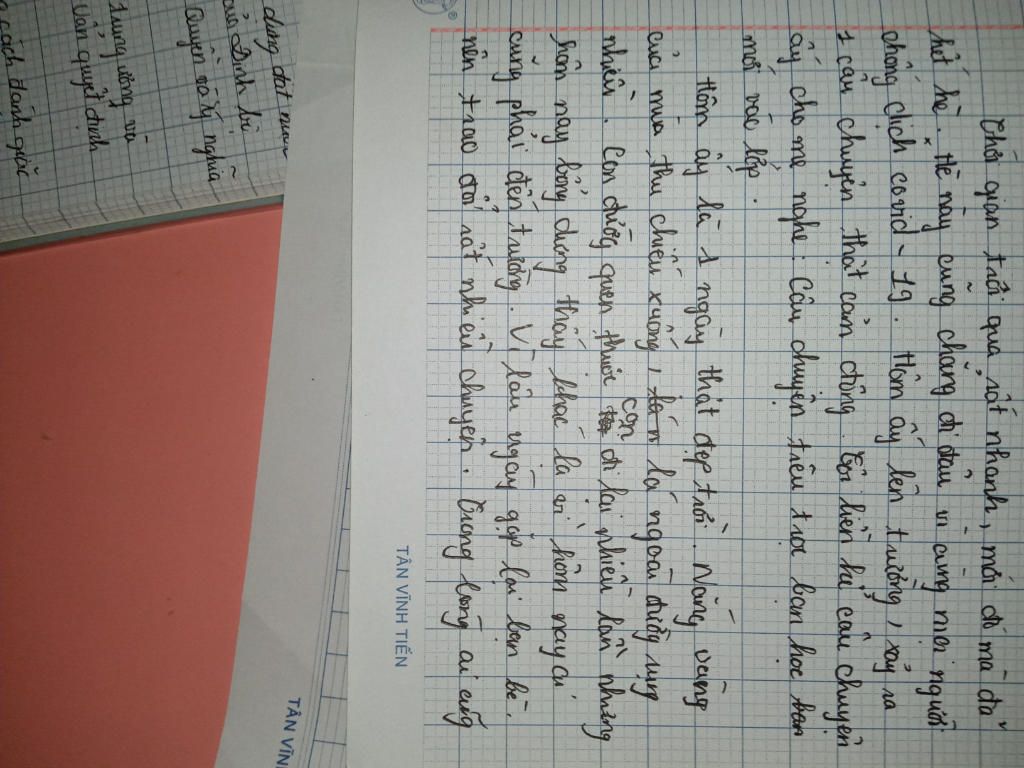 Thời gian trôi qua rất nhanh, mới đó mà đã
hết hè. Hè này cũng chẳng đi đâu vì cùng mọi người
chống dịch covid-19. Hôm ấy lên trường, xảy ra
1 câu chuyện thật cảm động. Tôi liền kể câu chuyện
ấy cho mẹ nghe. Câu chuyện trêu trọi bạn học
mới vào lớp.
Hôm ấy là 1 ngày thật đẹp trời. Nắng vàng
của mùa thu chiếu xuống, lá ngoài đường rụng
nhiều. Con đường quen thuộc con đi lại nhiều lần nhưng
hôm nay bỗng dưng thấy khác lạ vì hôm nay cí
cũng phải đến trường. Vì lâu ngày gặp lại bạn bè.
nên trao đổi rất nhiều chuyện. Trong lòng ai cũng
TÂN VĨNH TIẾN
TÂN VĨN
dựng đất nước
của Đinh Bộ
Quyền và ý nghĩa
Trung ương và
Vẫn quyết định
cách đánh giặc